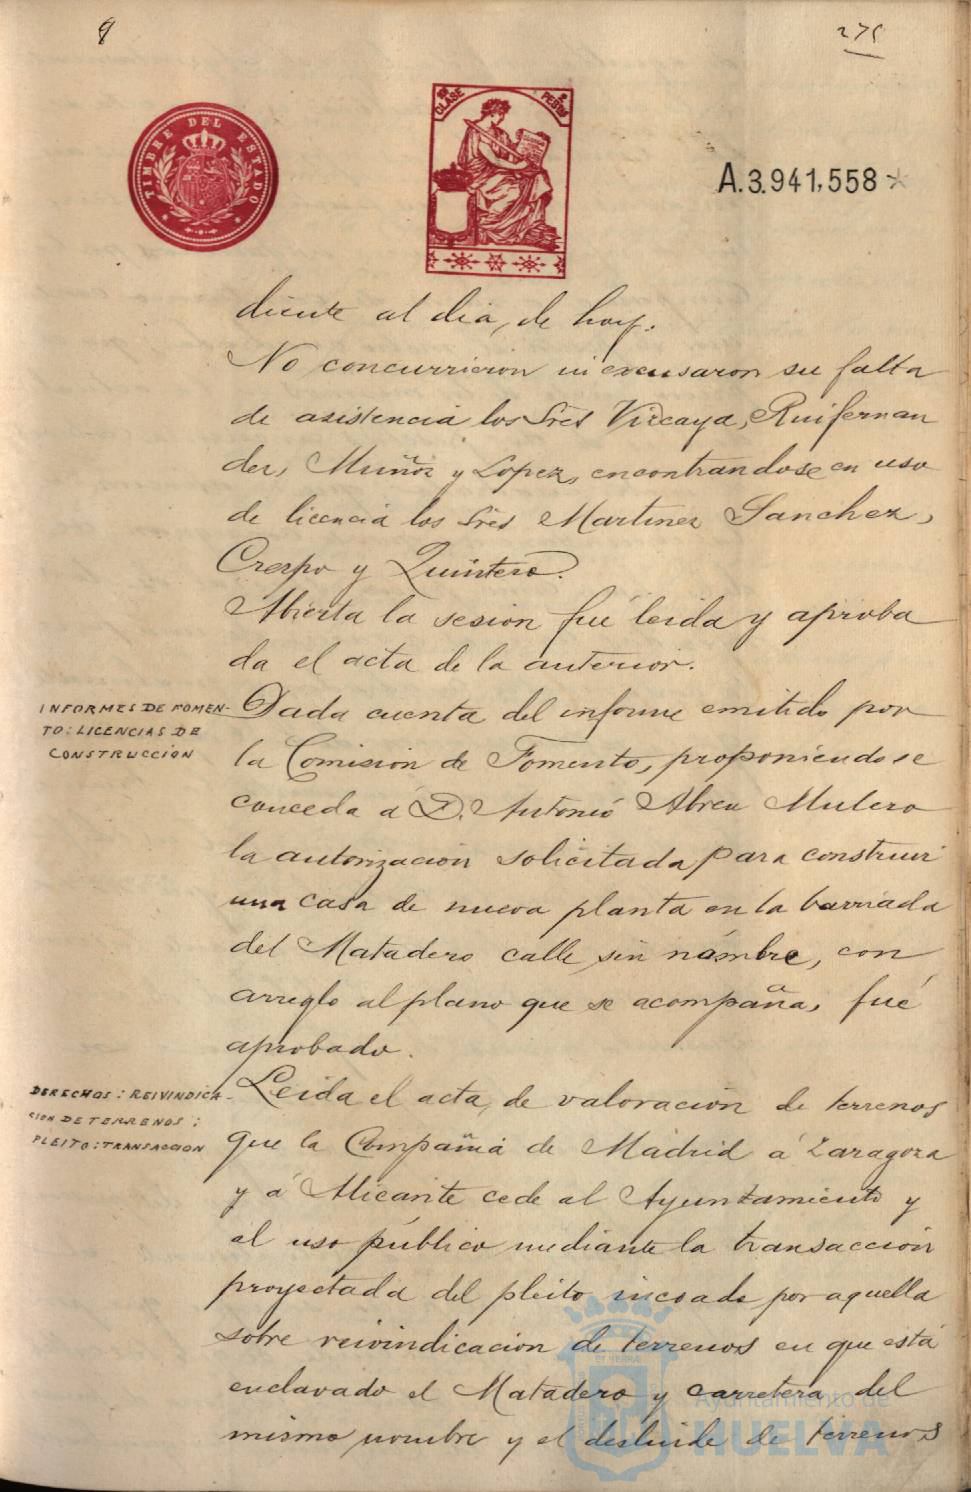 8
275
TIMBRE DEL ESTADO
CLASE
PESETAS
A.3.941,558*
diente al dia, de hoy.
No concurrieron ni excusaron su falta
de asistencia los Sres Vizcaya, Ruifernan
dez, Muñoz y Lopez, encontrandose en uso
de licencia los Sres Martinez Sanchez,
Crespo y Quintero.
Abierta la sesion fué leida y aproba
da el acta de la anterior.
INFORMES DE FOMEN-
TO: LICENCIAS DE
CONSTRUCCIÓN
Dada cuenta del informe emitido por
la Comision de Fomento, proponiendo se
conceda á D. Antonio Abreu Mulero
la autorización solicitada para construir
una casa de nueva planta en la barriada
del Matadero calle sin nombre, con
arreglo al plano que se acompaña, fué
aprobado.
DERECHOS: REIVINDICA-
CION DE TERRENOS:
PLEITO: TRANSACCION
Leida el acta, de valoración de terrenos
que la Compañia de Madrid á Zaragoza
y á Alicante cede al Ayuntamiento y
al uso público mediante la transacción
proyectada del pleito incoado por aquella
sobre reivindicación de terrenos en que está
enclavado el Matadero y carretera del
mismo nombre y el deslinde de terrenos
Ayuntamiento de
HUELVA